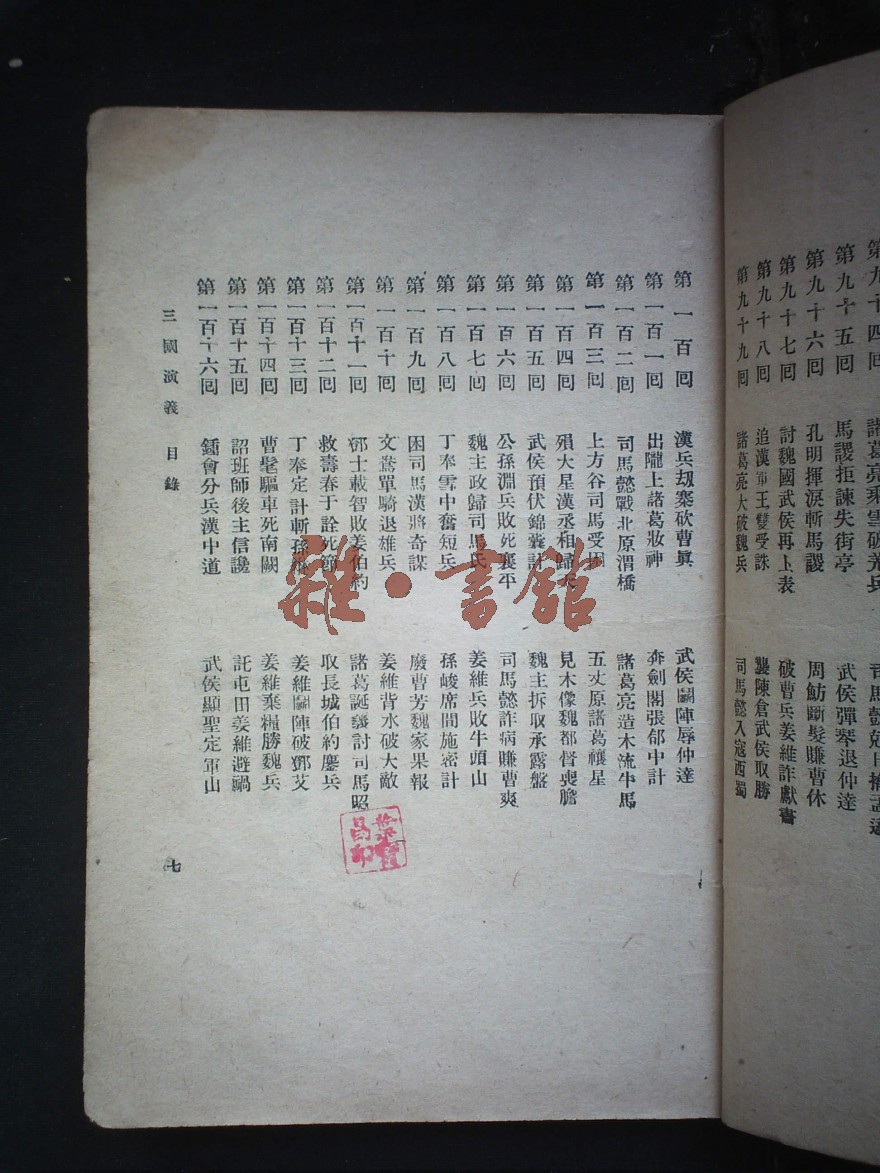 諸葛亮乘雪破羌兵
第九十五回 馬謖拒諫失街亭 武侯彈琴退仲達
第九十六回 孔明揮淚斬馬謖 周魴斷髮賺曹休
第九十七回 討魏國武侯再上表 破曹兵姜維詐獻書
第九十八回 追漢軍王雙受誅 襲陳倉武侯取勝
第九十九回 諸葛亮大破魏兵 司馬懿入寇西蜀
第一百回 漢兵刧寨破曹眞 武侯鬭陣辱仲達
第一百一回 出隴上諸葛妝神 奔劍閣張郃中計
第一百二回 司馬懿戰北原渭橋 諸葛亮造木流牛馬
第一百三回 上方谷司馬受困 五丈原諸葛禳星
第一百四回 殞大星漢丞相歸天 見木像魏都督喪膽
第一百五回 武侯預伏錦囊計 魏主拆取承露盤
第一百六回 公孫淵兵敗死襄平 司馬懿詐病賺曹爽
第一百七回 魏主政歸司馬氏 姜維兵敗牛頭山
第一百八回 丁奉雪中奮短兵 孫峻席間施密計
第一百九回 困司馬漢將奇謀 廢曹芳魏家果報
第一百十回 文鴦單騎退雄兵 姜維背水破大敵
第一百十一回 鄧士載智敗姜伯約 諸葛誕議討司馬昭
第一百十二回 救壽春于詮死節 取長城伯約鏖兵
第一百十三回 丁奉定計斬孫綝 姜維鬭陣破鄧艾
第一百十四回 曹髦驅車死南闕 姜維棄糧勝魏兵
第一百十五回 詔班師後主信讒 託屯田姜維避禍
第一百十六回 鍾會分兵漢中道 武侯顯聖定軍山
三國演義 目錄
七
雜·書館